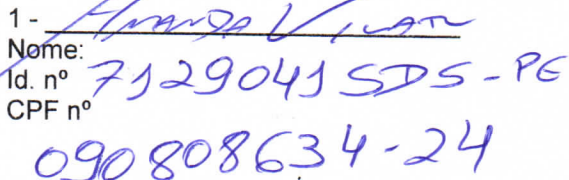 1 - Amanda Vilar
Nome:
Id. nº 7129041 SDS - PE
CPF nº
090808634-24